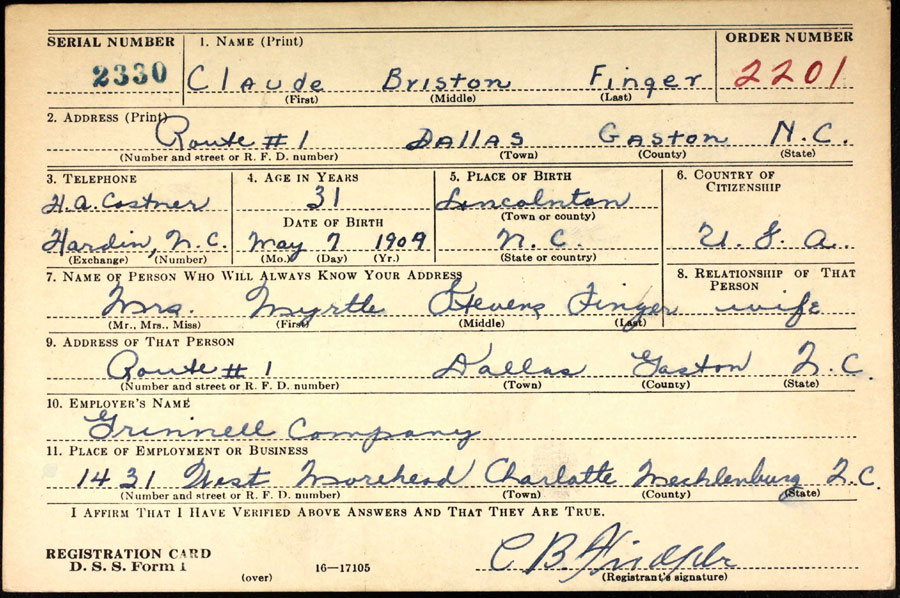 SERIAL NUMBER 1. NAME (Print) ORDER NUMBER
2330 Claude Briston Finger 2201
(First) (Middle) (Last)
2. ADDRESS (Print)
Route #1 Dallas Gaston N.C.
(Number and street or R. F. D. number) (Town) (County) (State)
3. TELEPHONE 4. AGE IN YEARS 5. PLACE OF BIRTH 6. COUNTRY OF CITIZENSHIP
H.A. Costner 31 Lincolnton
(Town or county)
DATE OF BIRTH
Hardin, N.C. May 7 1909 N.C. U.S.A.
(Exchange) (Number) (Mo.) (Day) (Yr.) (State or country)
7. NAME OF PERSON WHO WILL ALWAYS KNOW YOUR ADDRESS 8. RELATIONSHIP OF THAT PERSON
Mrs. Myrtle Stevens Finger wife
(Mr., Mrs., Miss) (First) (Middle) (Last)
9. ADDRESS OF THAT PERSON
Route #1 Dallas Gaston N.C.
(Number and street or R. F. D. number) (Town) (County) (State)
10. EMPLOYER'S NAME
Grinnell Company
11. PLACE OF EMPLOYMENT OR BUSINESS
1431 West Morehead Charlotte Mecklenburg N.C.
(Number and street or R. F. D. number) (Town) (County) (State)
I AFFIRM THAT I HAVE VERIFIED ABOVE ANSWERS AND THAT THEY ARE TRUE.
REGISTRATION CARD
D. S. S. Form 1
(over) 16—17105
C.B. Finger
(Registrant's signature)